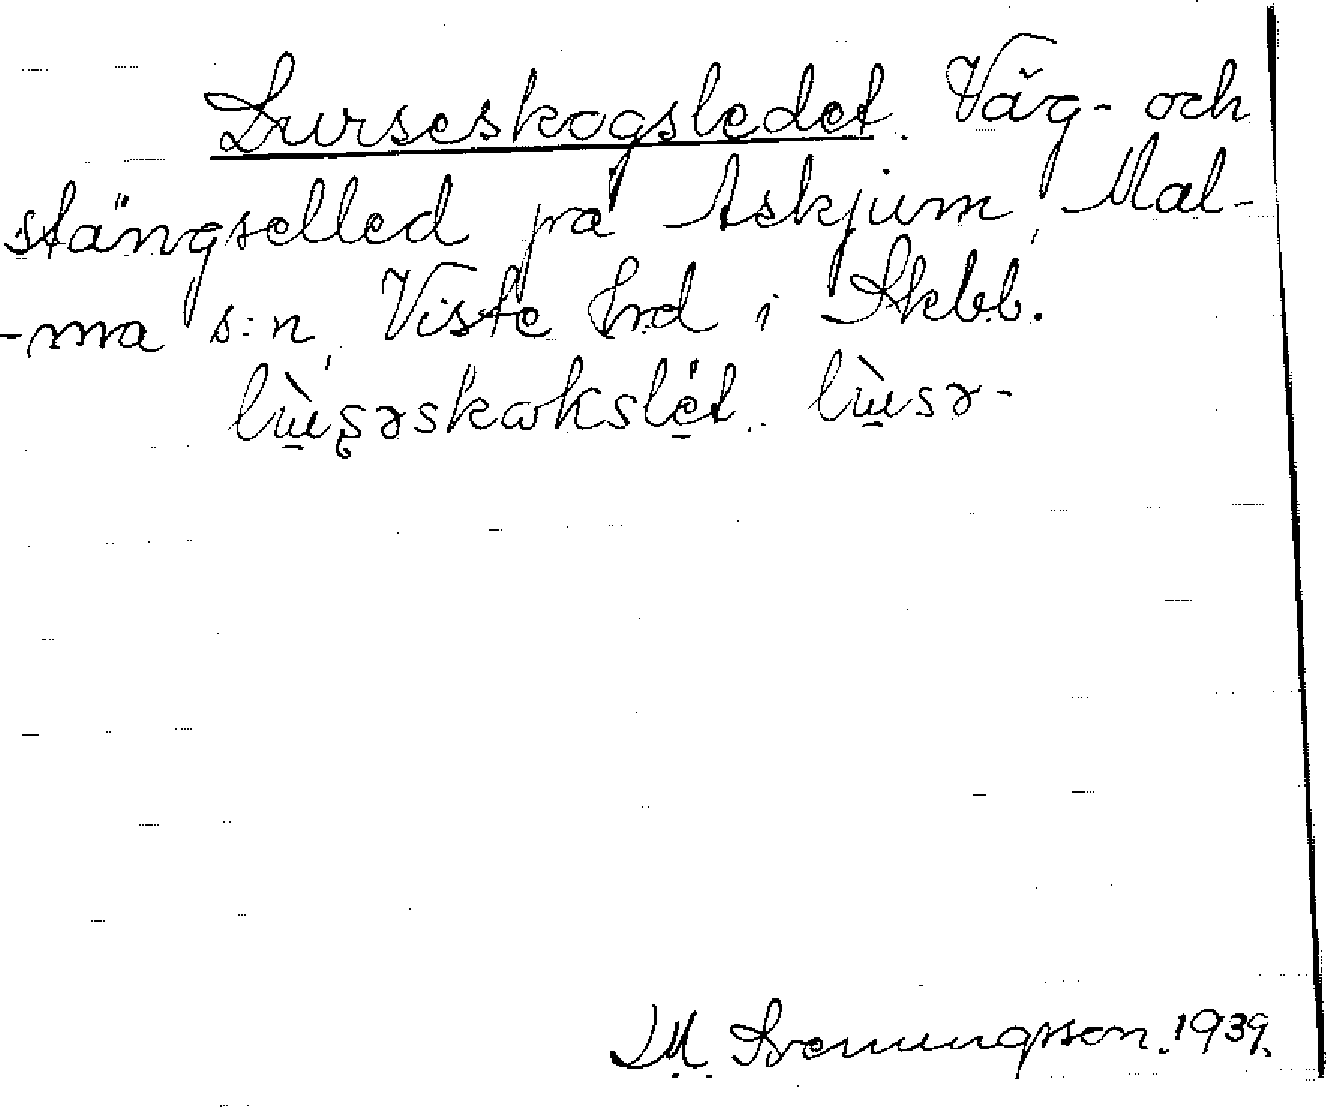 Lurseskogsledet. Väg- och
stängselled på Askjum Mal-
-ma s:n, Viste hrd i Skbl.
lùu̱ʂəskωkslét. lùu̱sə-
M. Svenungsson. 1939.